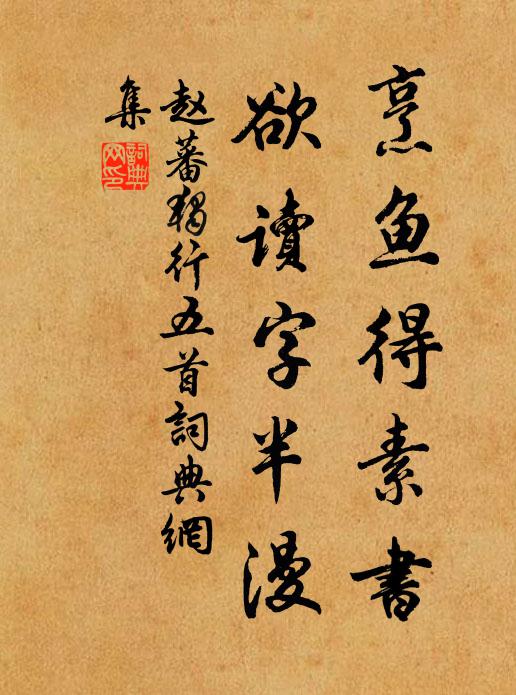 烹鱼得素書
欲讀字半漫
赵蕃独行五首詞典網
集
詞典網印